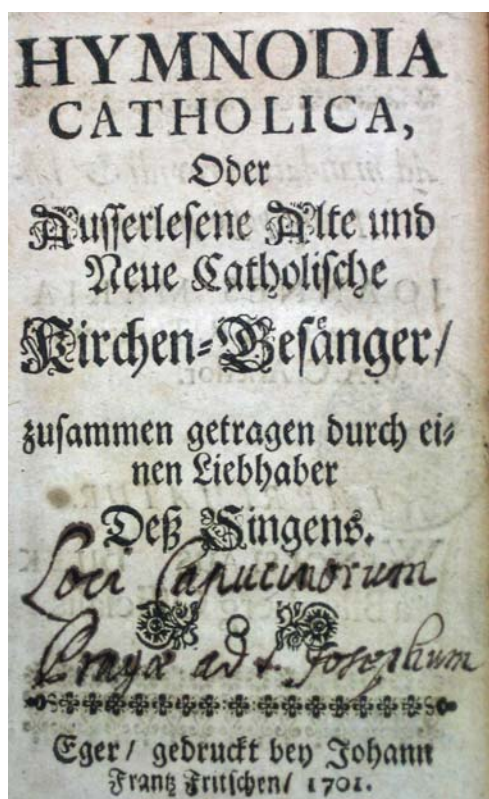 HYMNODIA
CATHOLICA,
Oder
Ausserlesene Alte und
Neue Catholische
Kirchen-Gesänger/
zusammen getragen durch ei-
nen Liebhaber
Deß Singens.
Loci Capucinorum
Pragæ ad S. Josephum
Eger/ gedruckt bey Johann
Frantz Fritschen/ 1701.